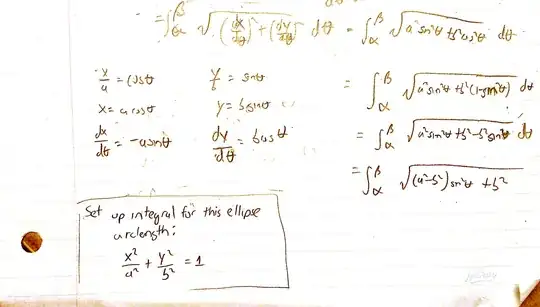 = ∫_α^β √((dx/dθ)² + (dy/dθ)²) dθ = ∫_α^β √(a²sin²θ + b²cos²θ) dθ
x/a = cosθ y/b = sinθ
x = a cosθ y = b sinθ
dx/dθ = -a sinθ dy/dθ = b cosθ
= ∫_α^β √(a²sin²θ + b²(1-sin²θ)) dθ
= ∫_α^β √(a²sin²θ + b² - b²sin²θ) dθ
= ∫_α^β √((a²-b²)sin²θ + b²)
Set up integral for this ellipse
arclength:
x²/a² + y²/b² = 1